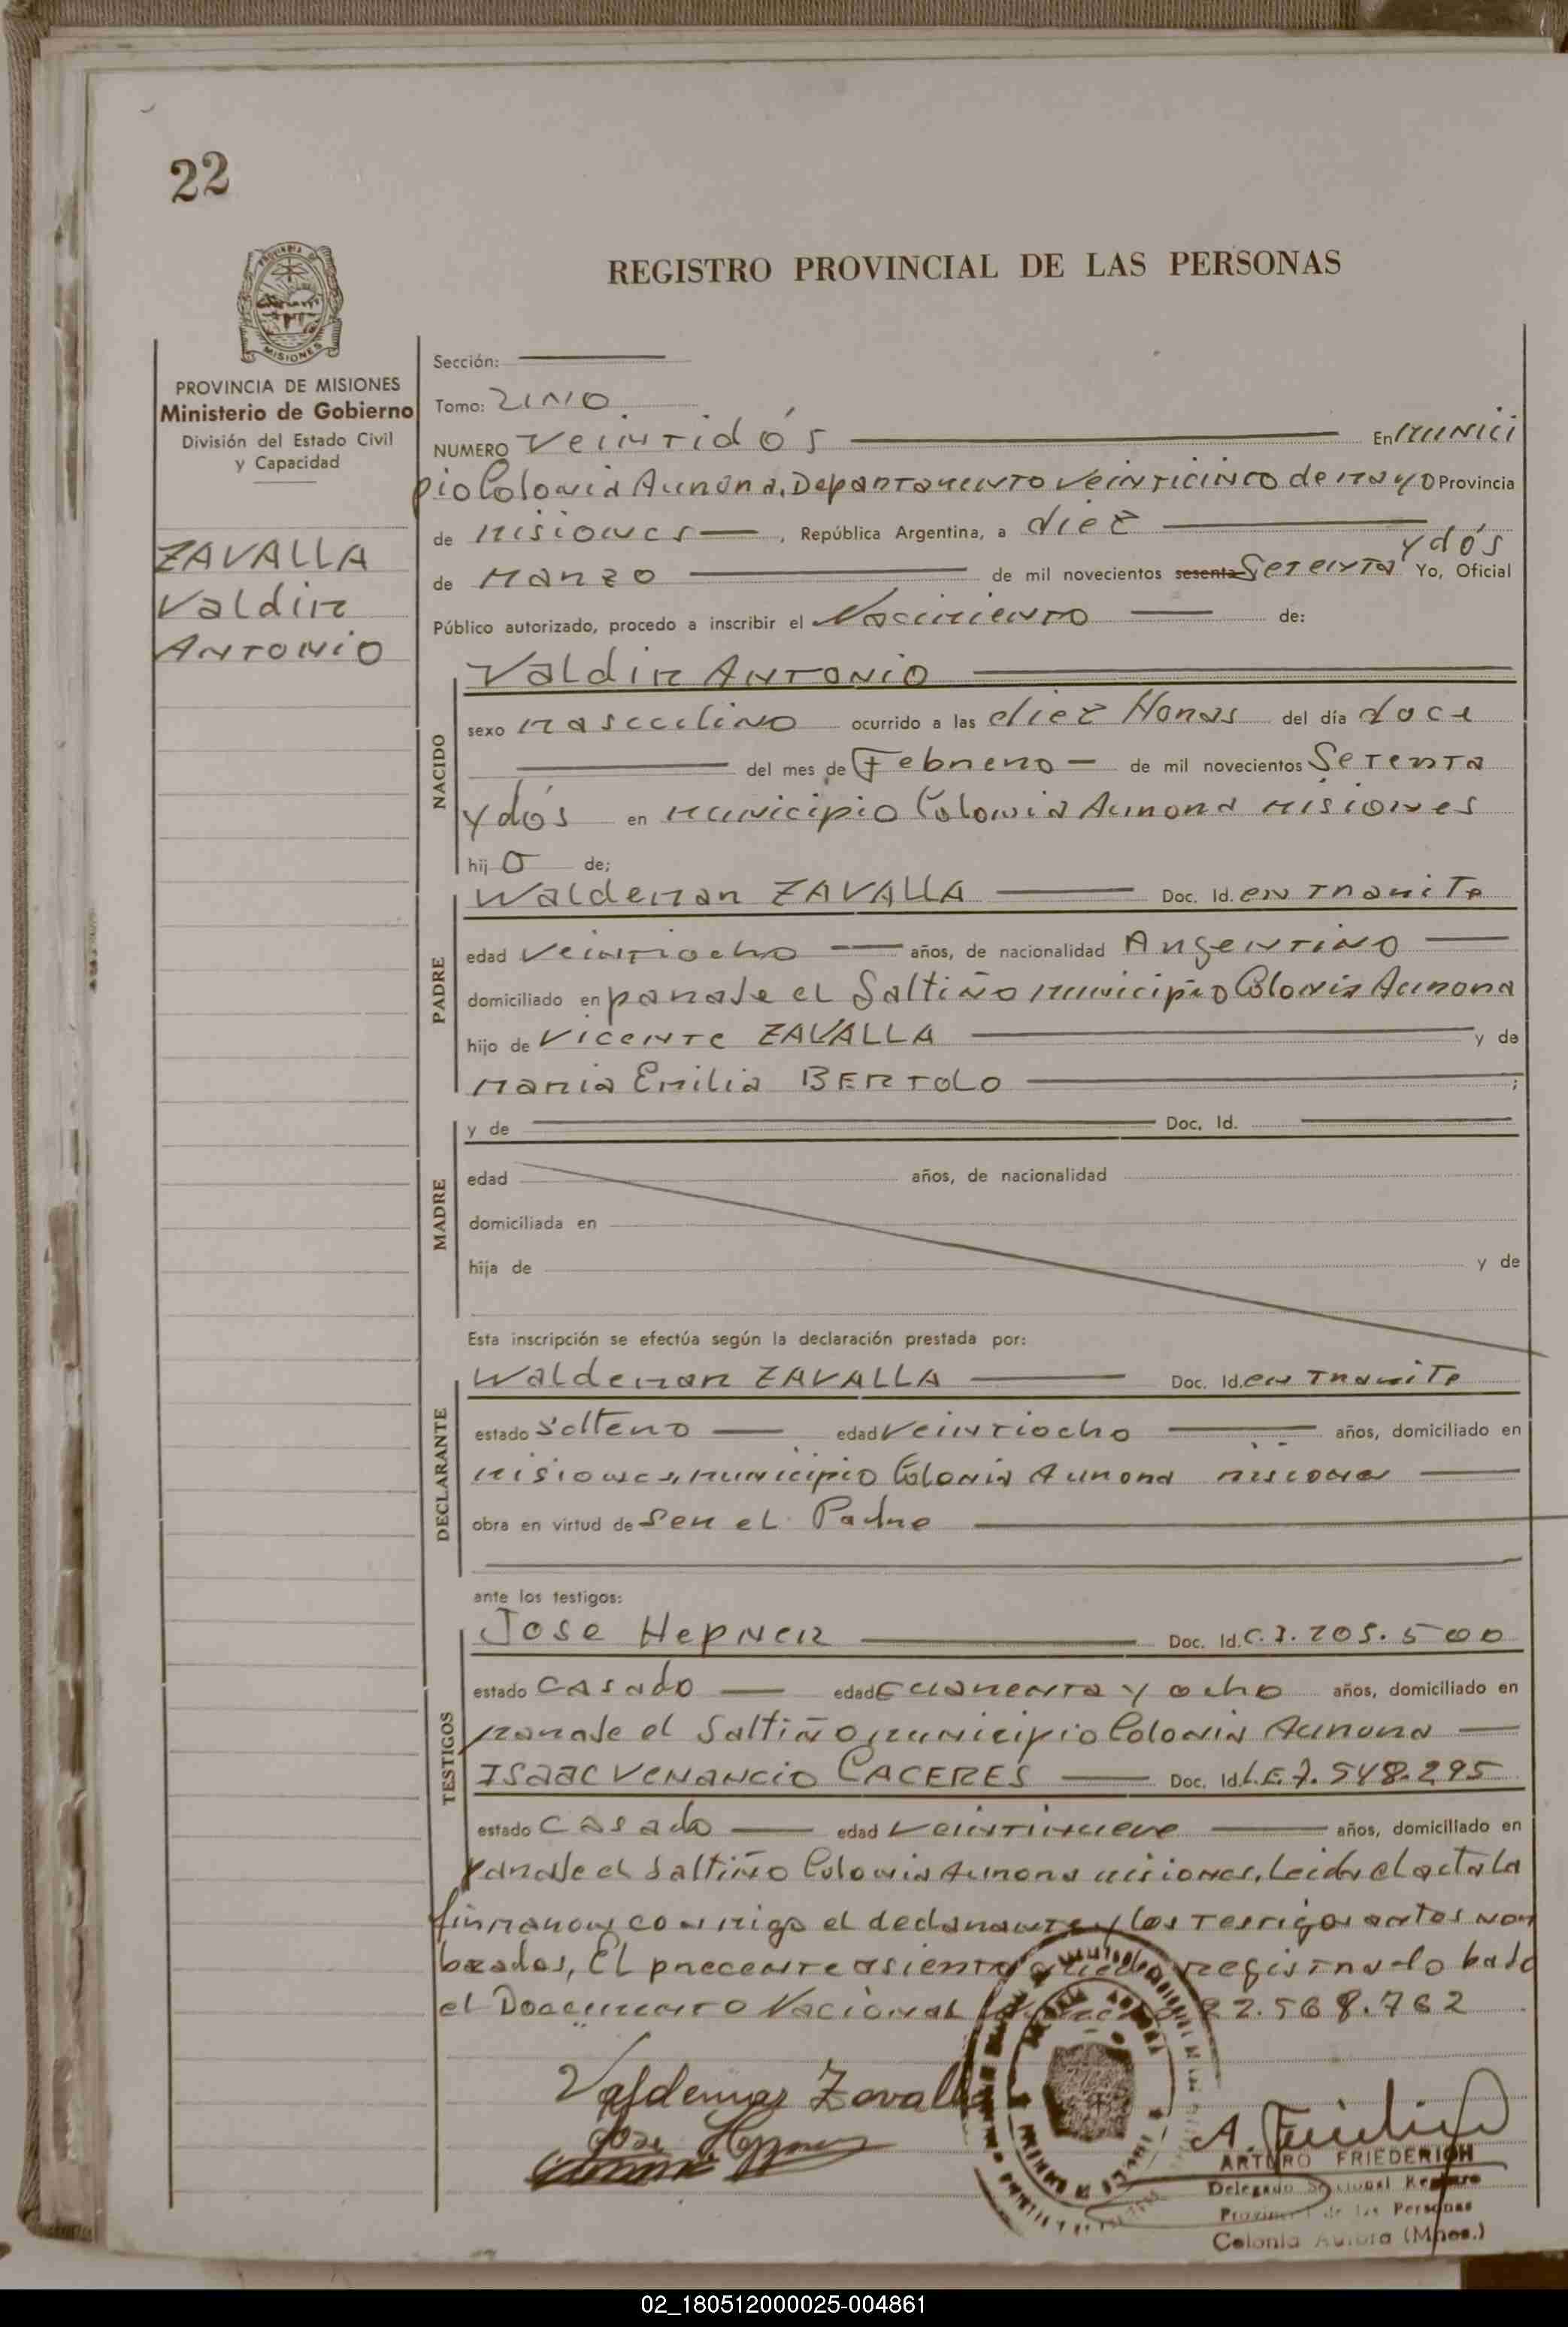 22
PROVINCIA DE
MISIONES
REGISTRO PROVINCIAL DE LAS PERSONAS
PROVINCIA DE MISIONES
Ministerio de Gobierno
División del Estado Civil
y Capacidad
ZAVALLA
Valdir
ANTONIO
Sección:
Tomo: UNO
NUMERO Veintidós En Munici
pio Colonia Aurora, Departamento Veinticinco de Mayo Provincia
de Misiones, República Argentina, a diez
de Marzo de mil novecientos sesenta Setenta y dós Yo, Oficial
Público autorizado, procedo a inscribir el Nacimiento de:
NACIDO
Valdir ANTONIO
sexo masculino ocurrido a las diez Horas del día doce
del mes de Febrero de mil novecientos Setenta
y dós en Municipio Colonia Aurora Misiones
hij o de;
PADRE
Waldemar ZAVALLA Doc. Id. en Tramite
edad Veintiocho años, de nacionalidad Argentino
domiciliado en paraje el Saltiño Municipio Colonia Aurora
hijo de Vicente ZAVALLA y de
Maria Emilia BERTOLO ;
MADRE
y de Doc. Id.
edad años, de nacionalidad
domiciliada en
hija de y de
Esta inscripción se efectúa según la declaración prestada por:
DECLARANTE
Waldemar ZAVALLA Doc. Id. en Tramite
estado Soltero edad Veintiocho años, domiciliado en
Misiones, Municipio Colonia Aurora Misiones
obra en virtud de Ser el Padre
ante los testigos:
TESTIGOS
Jose Hepner Doc. Id. C.I. 205.500
estado Casado edad Cuarenta y ocho años, domiciliado en
Paraje el Saltiño Municipio Colonia Aurora
ISaac Venancio CACERES Doc. Id. L.E. 7.548.295
estado Casado edad Veintinueve años, domiciliado en
Paraje el Saltiño Colonia Aurora Misiones, Leida el acta la
firmaron conmigo el declarante y los Testigos antes nom
brados, El precente asiento queda registrado bajo
el Documento Nacional 22.568.762
Valdemar Zavalla
Jose Hepner
A. Friederich
ARTURO FRIEDERICH
Delegado Seccional Registro
Provincial de las Personas
Colonia Aurora (Mnes.)
02_180512000025-004861